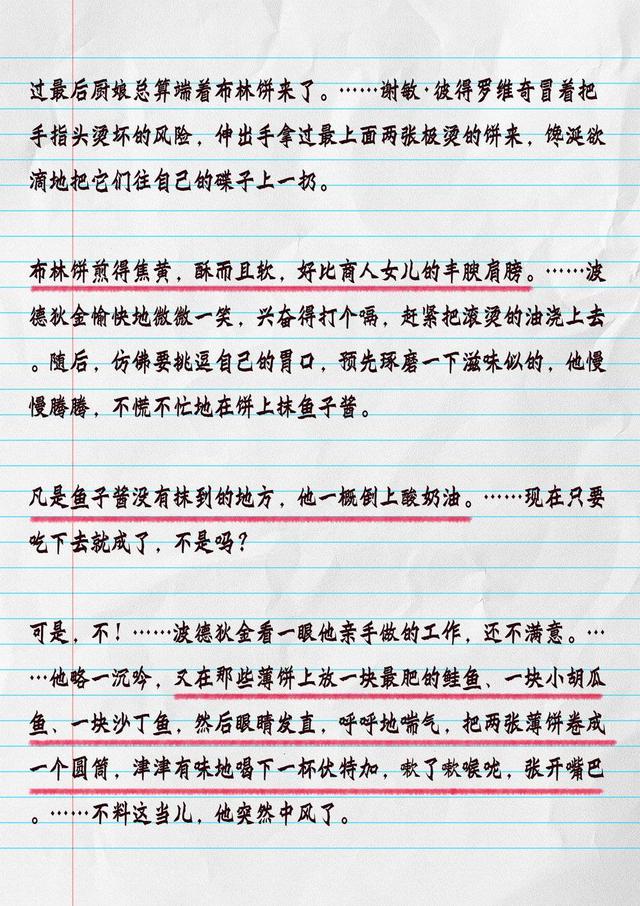 过最后厨娘总算端着布林饼来了。……谢敏·彼得罗维奇冒着把
手指头烫坏的风险，伸出手拿过最上面两张极烫的饼来，馋涎欲
滴地把它们往自己的碟子上一扔。
布林饼煎得焦黄，酥而且软，好比商人女儿的丰腴肩膀。……波
德狄金愉快地微微一笑，兴奋得打个嗝，赶紧把滚烫的油浇上去
。随后，仿佛要挑逗自己的胃口，预先琢磨一下滋味似的，他慢
慢腾腾，不慌不忙地在饼上抹鱼子酱。
凡是鱼子酱没有抹到的地方，他一概倒上酸奶油。……现在只要
吃下去就成了，不是吗？
可是，不！……波德狄金看一眼他亲手做的工作，还不满意。…
…他略一沉吟，又在那些薄饼上放一块最肥的鲑鱼、一块小胡瓜
鱼、一块沙丁鱼，然后眼睛发直，呼呼地喘气，把两张薄饼卷成
一个圆筒，津津有味地喝下一杯伏特加，嗽了嗽喉咙，张开嘴巴
。……不料这当儿，他突然中风了。